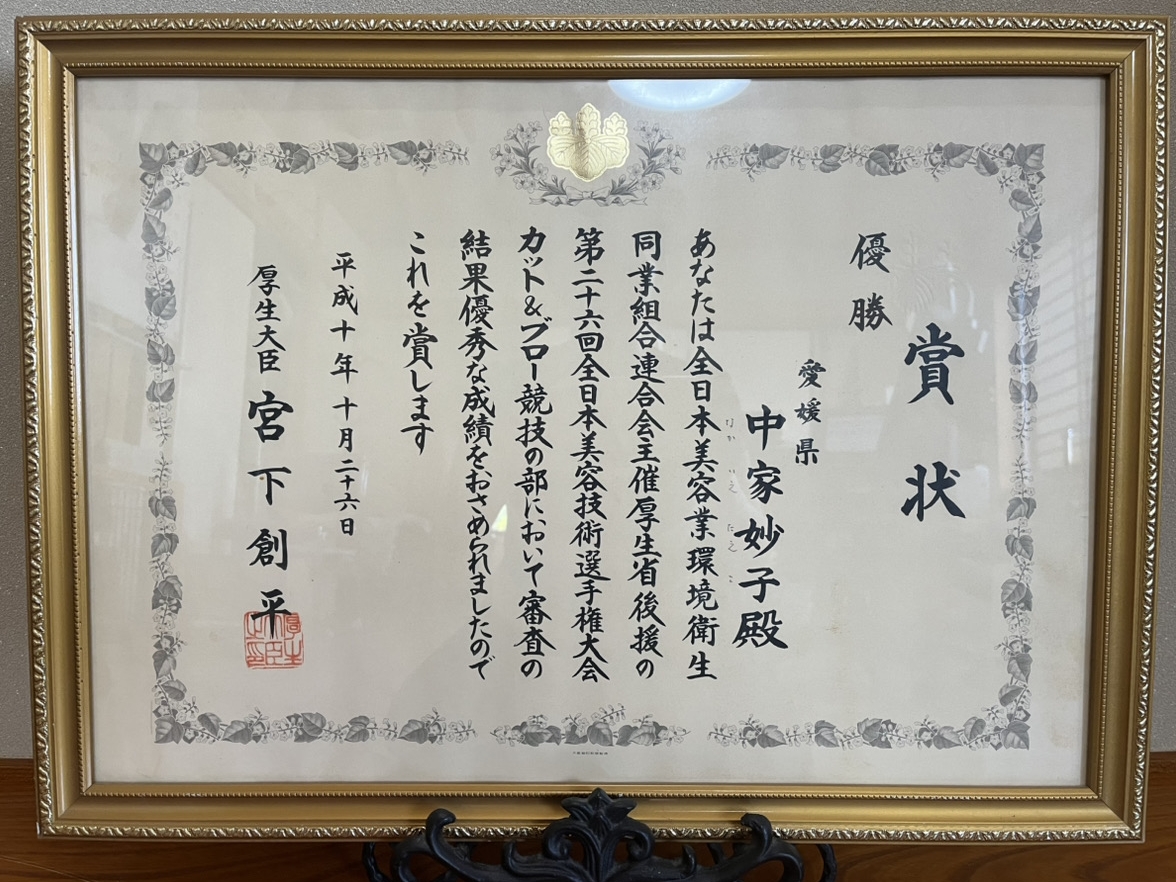 賞状
優勝
愛媛県
中家妙子殿
なか いえ たえ こ
あなたは全日本美容業環境衛生
同業組合連合会主催厚生省後援の
第二十六回全日本美容技術選手権大会
カット&ブロー競技の部において審査の
結果優秀な成績をおさめられましたので
これを賞します
平成十年十月二十六日
厚生大臣 宮下創平